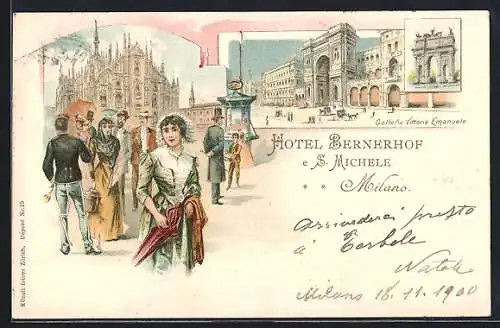 Galleria Vittorio Emanuele
HOTEL BERNERHOF
e S. MICHELE
Milano.
arrivederci presto
à Torbole
Milano 18.11.1900
Künzli frères Zürich, Déposé Nr. 15